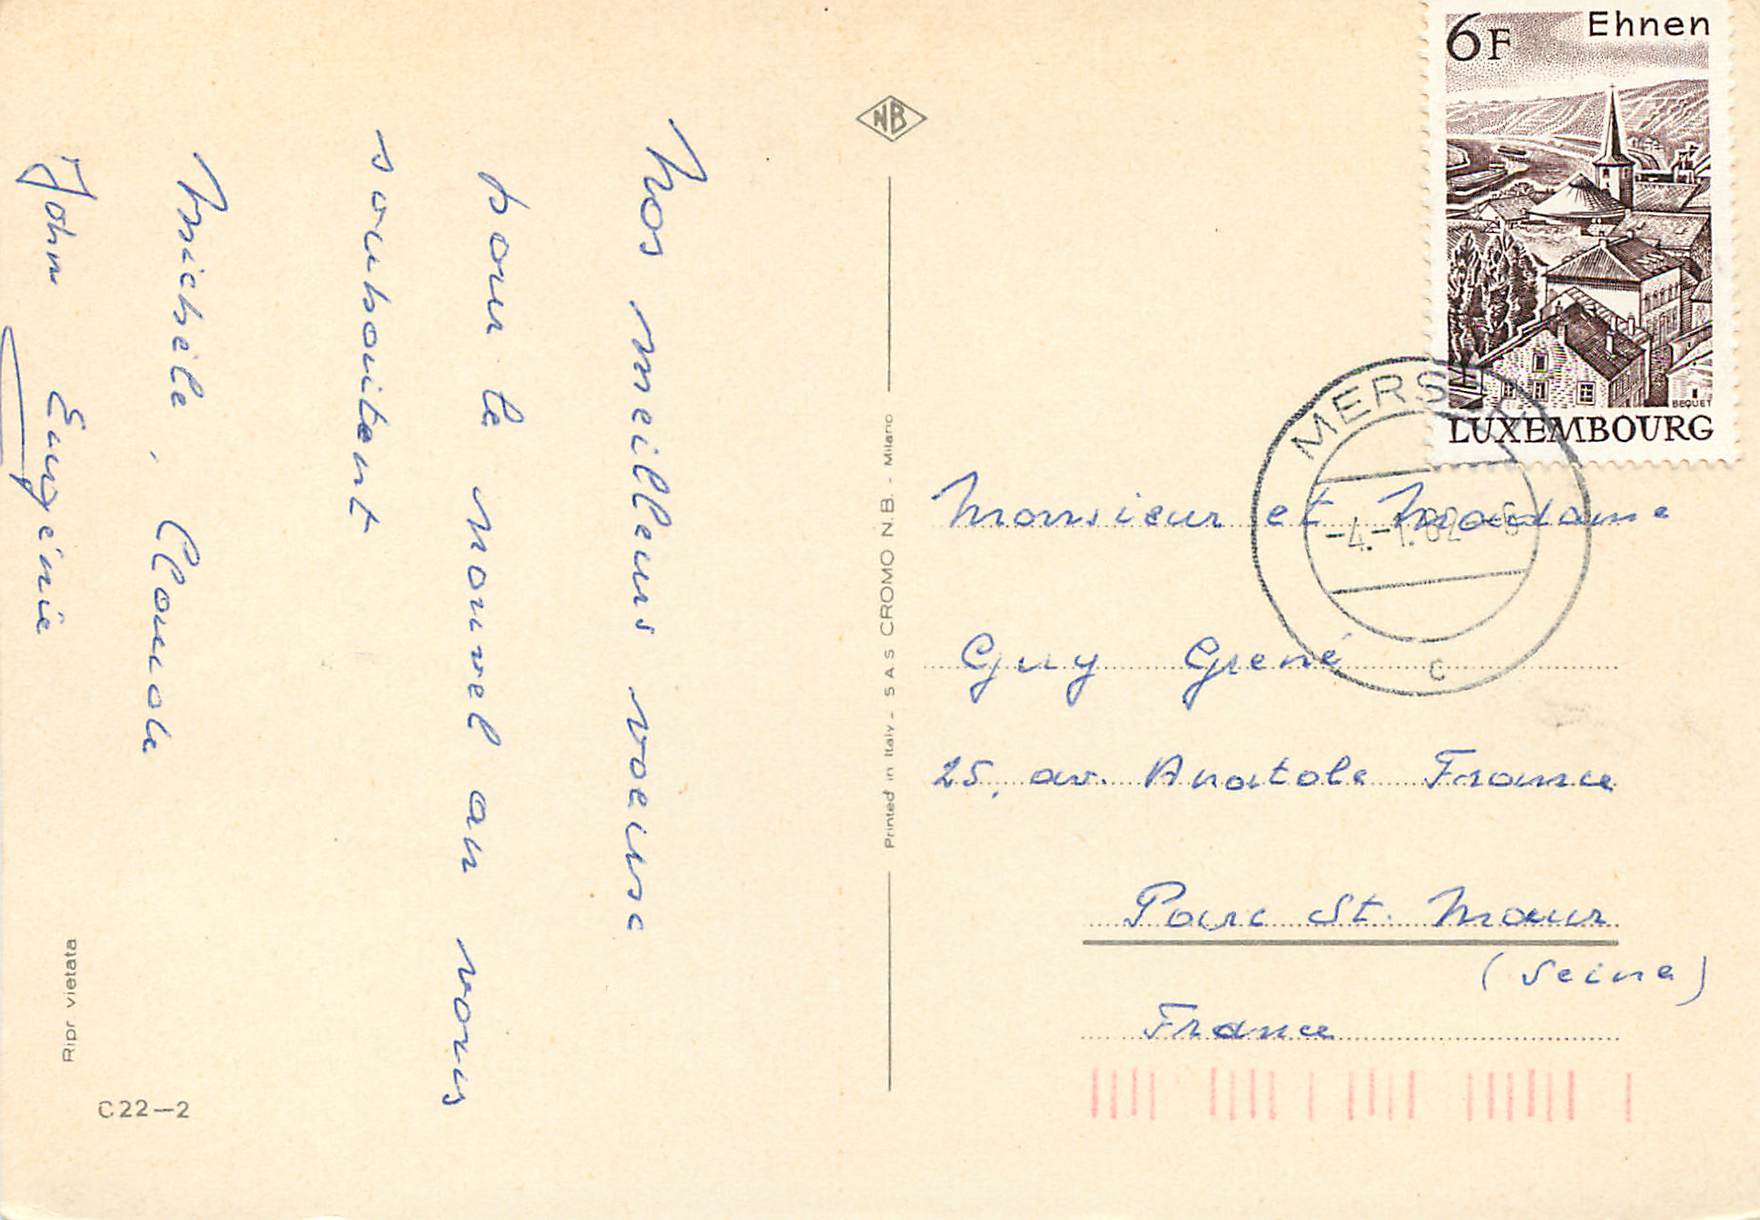 Nos meilleurs voeux
pour le nouvel an vous
souhaitent
Michèle, Claude
John Eugénie
Ripr vietata
C 22-2
NB
Printed in Italy - S A S CROMO N.B. - Milano
6F Ehnen
BEQUET
LUXEMBOURG
MERSCH
-4.-1.82
C
Monsieur et Madame
Guy Grené
25, av. Anatole France
Parc St. Maur
(Seine)
France